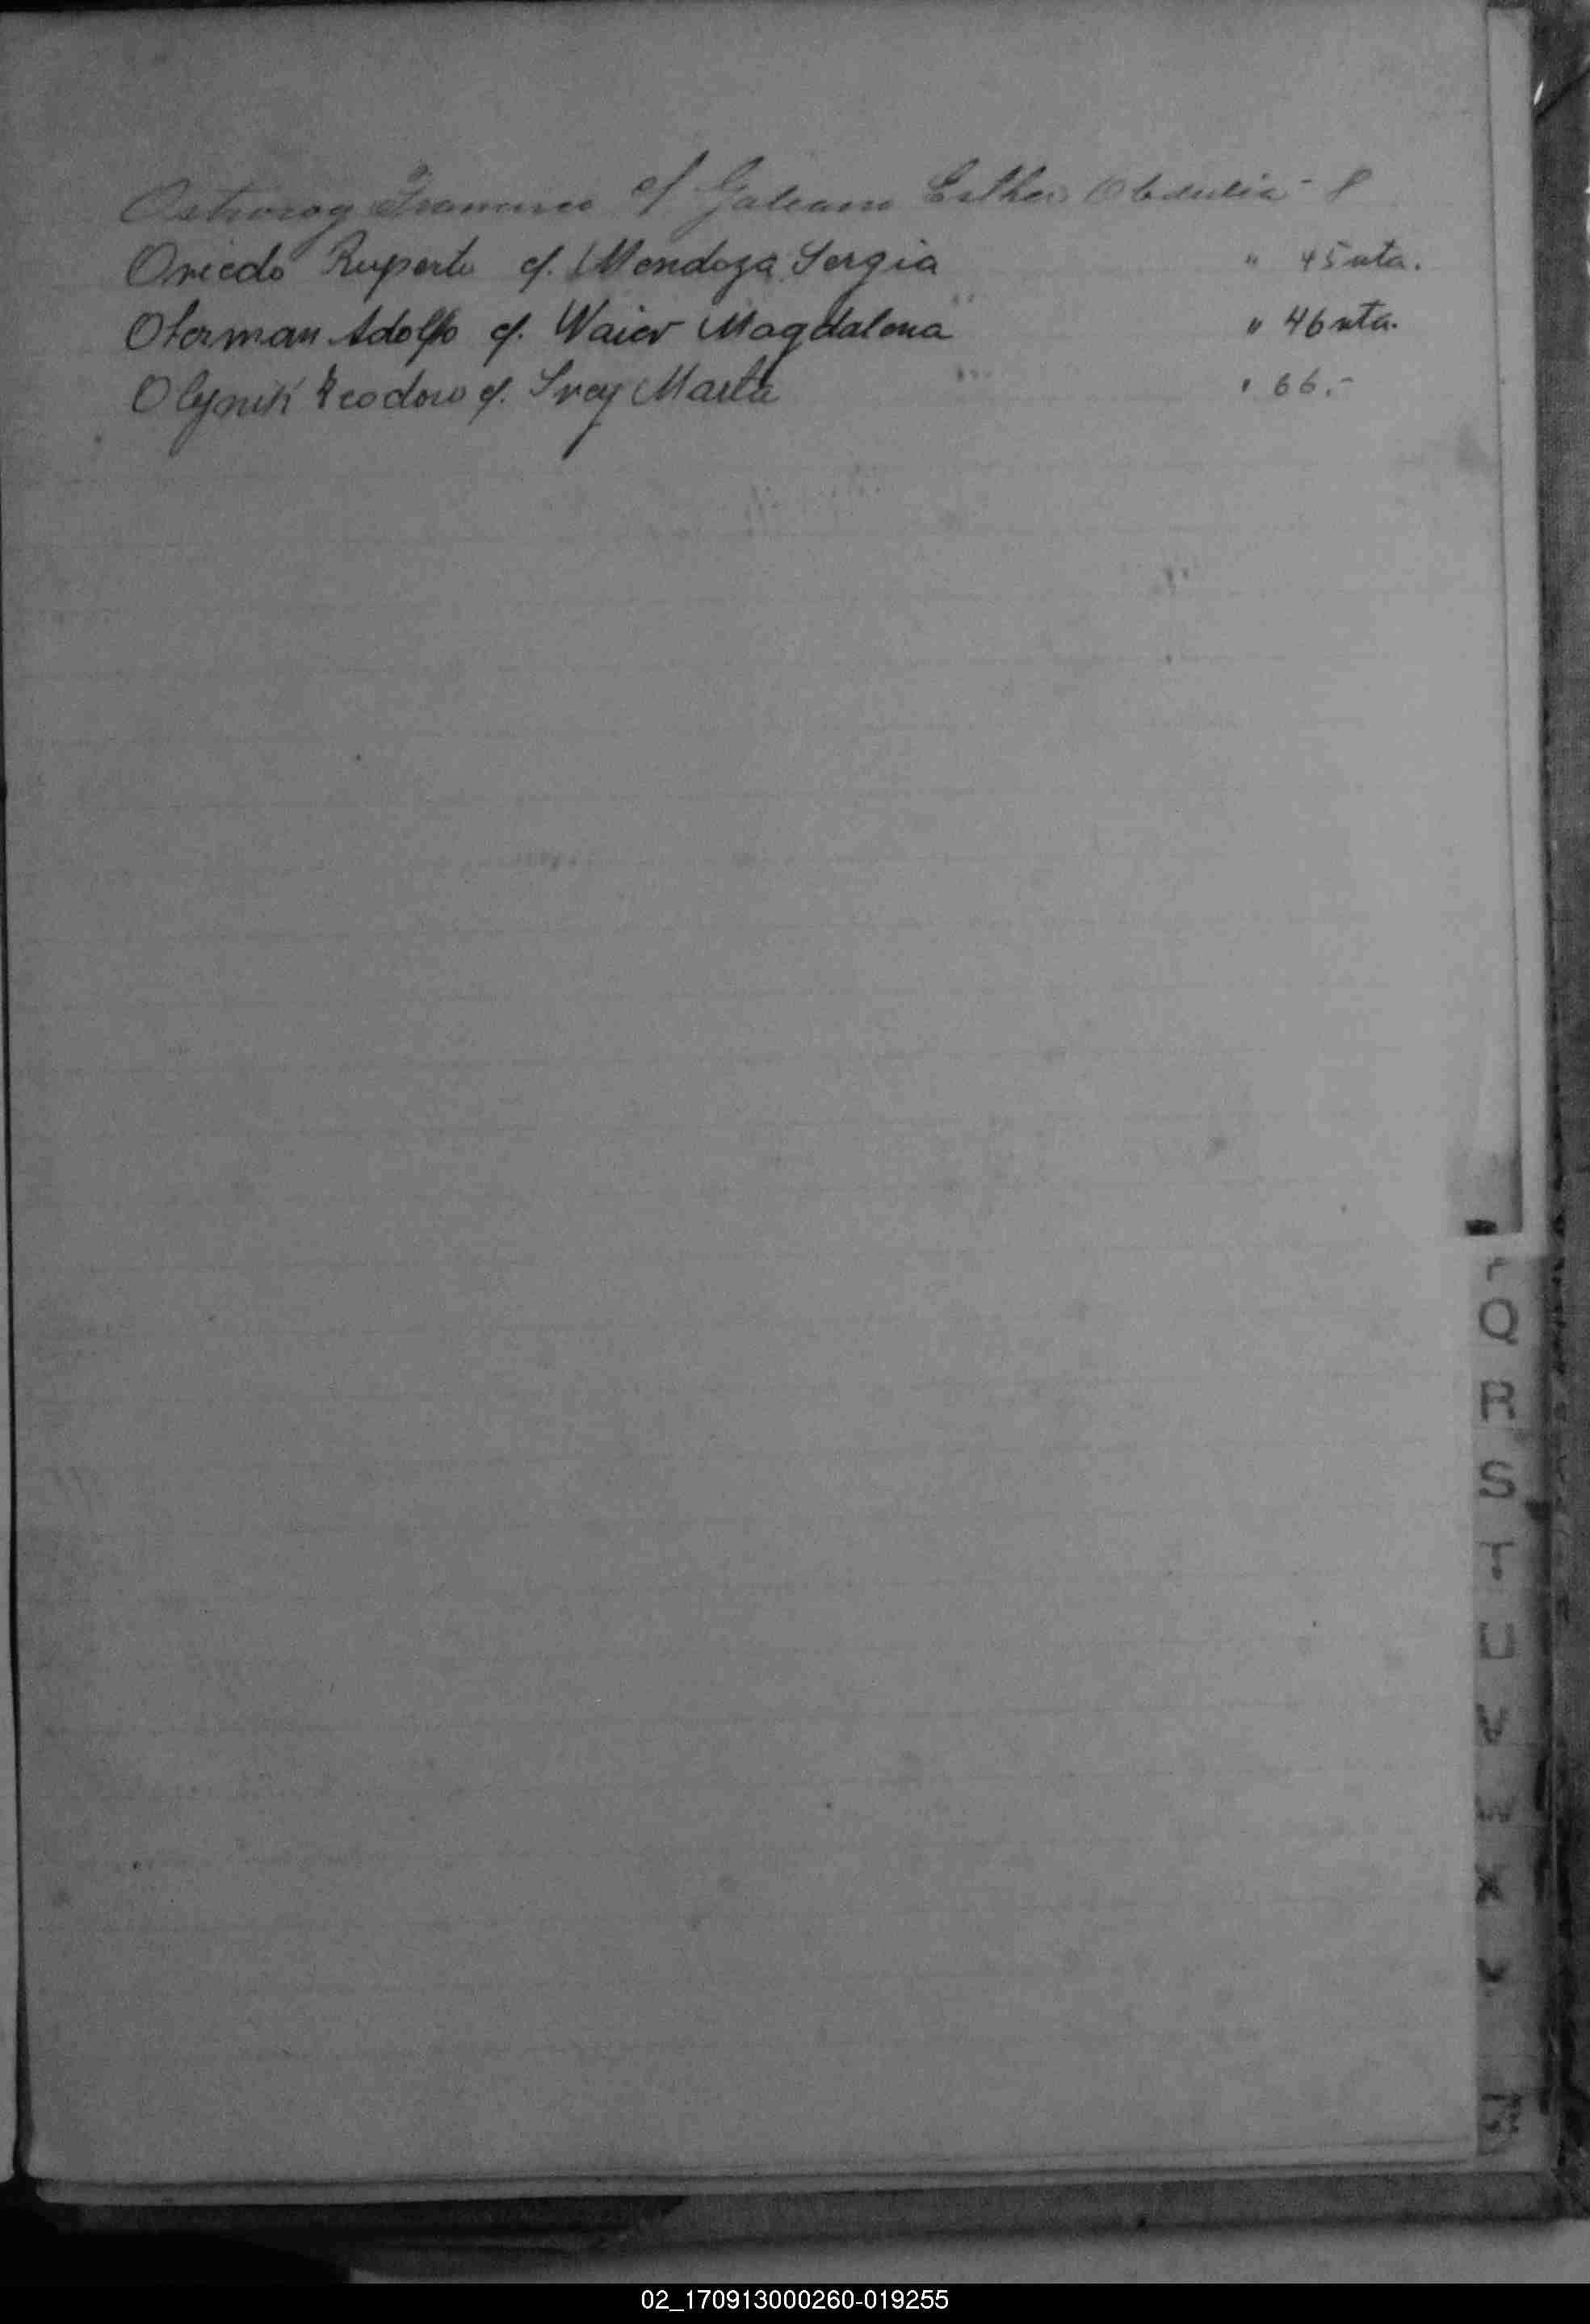 Ostrorog Francisco c/ Galeano Esther Obdulia - 8
Oviedo Ruperto c/. Mendoza Sergia " 45 vta.
Oterman Adolfo c/. Waier Magdalena " 46 vta.
Olynik Teodoro c/. Marta " 66.-
Q
R
S
T
U
V
W
X
Y
02_170913000260-019255